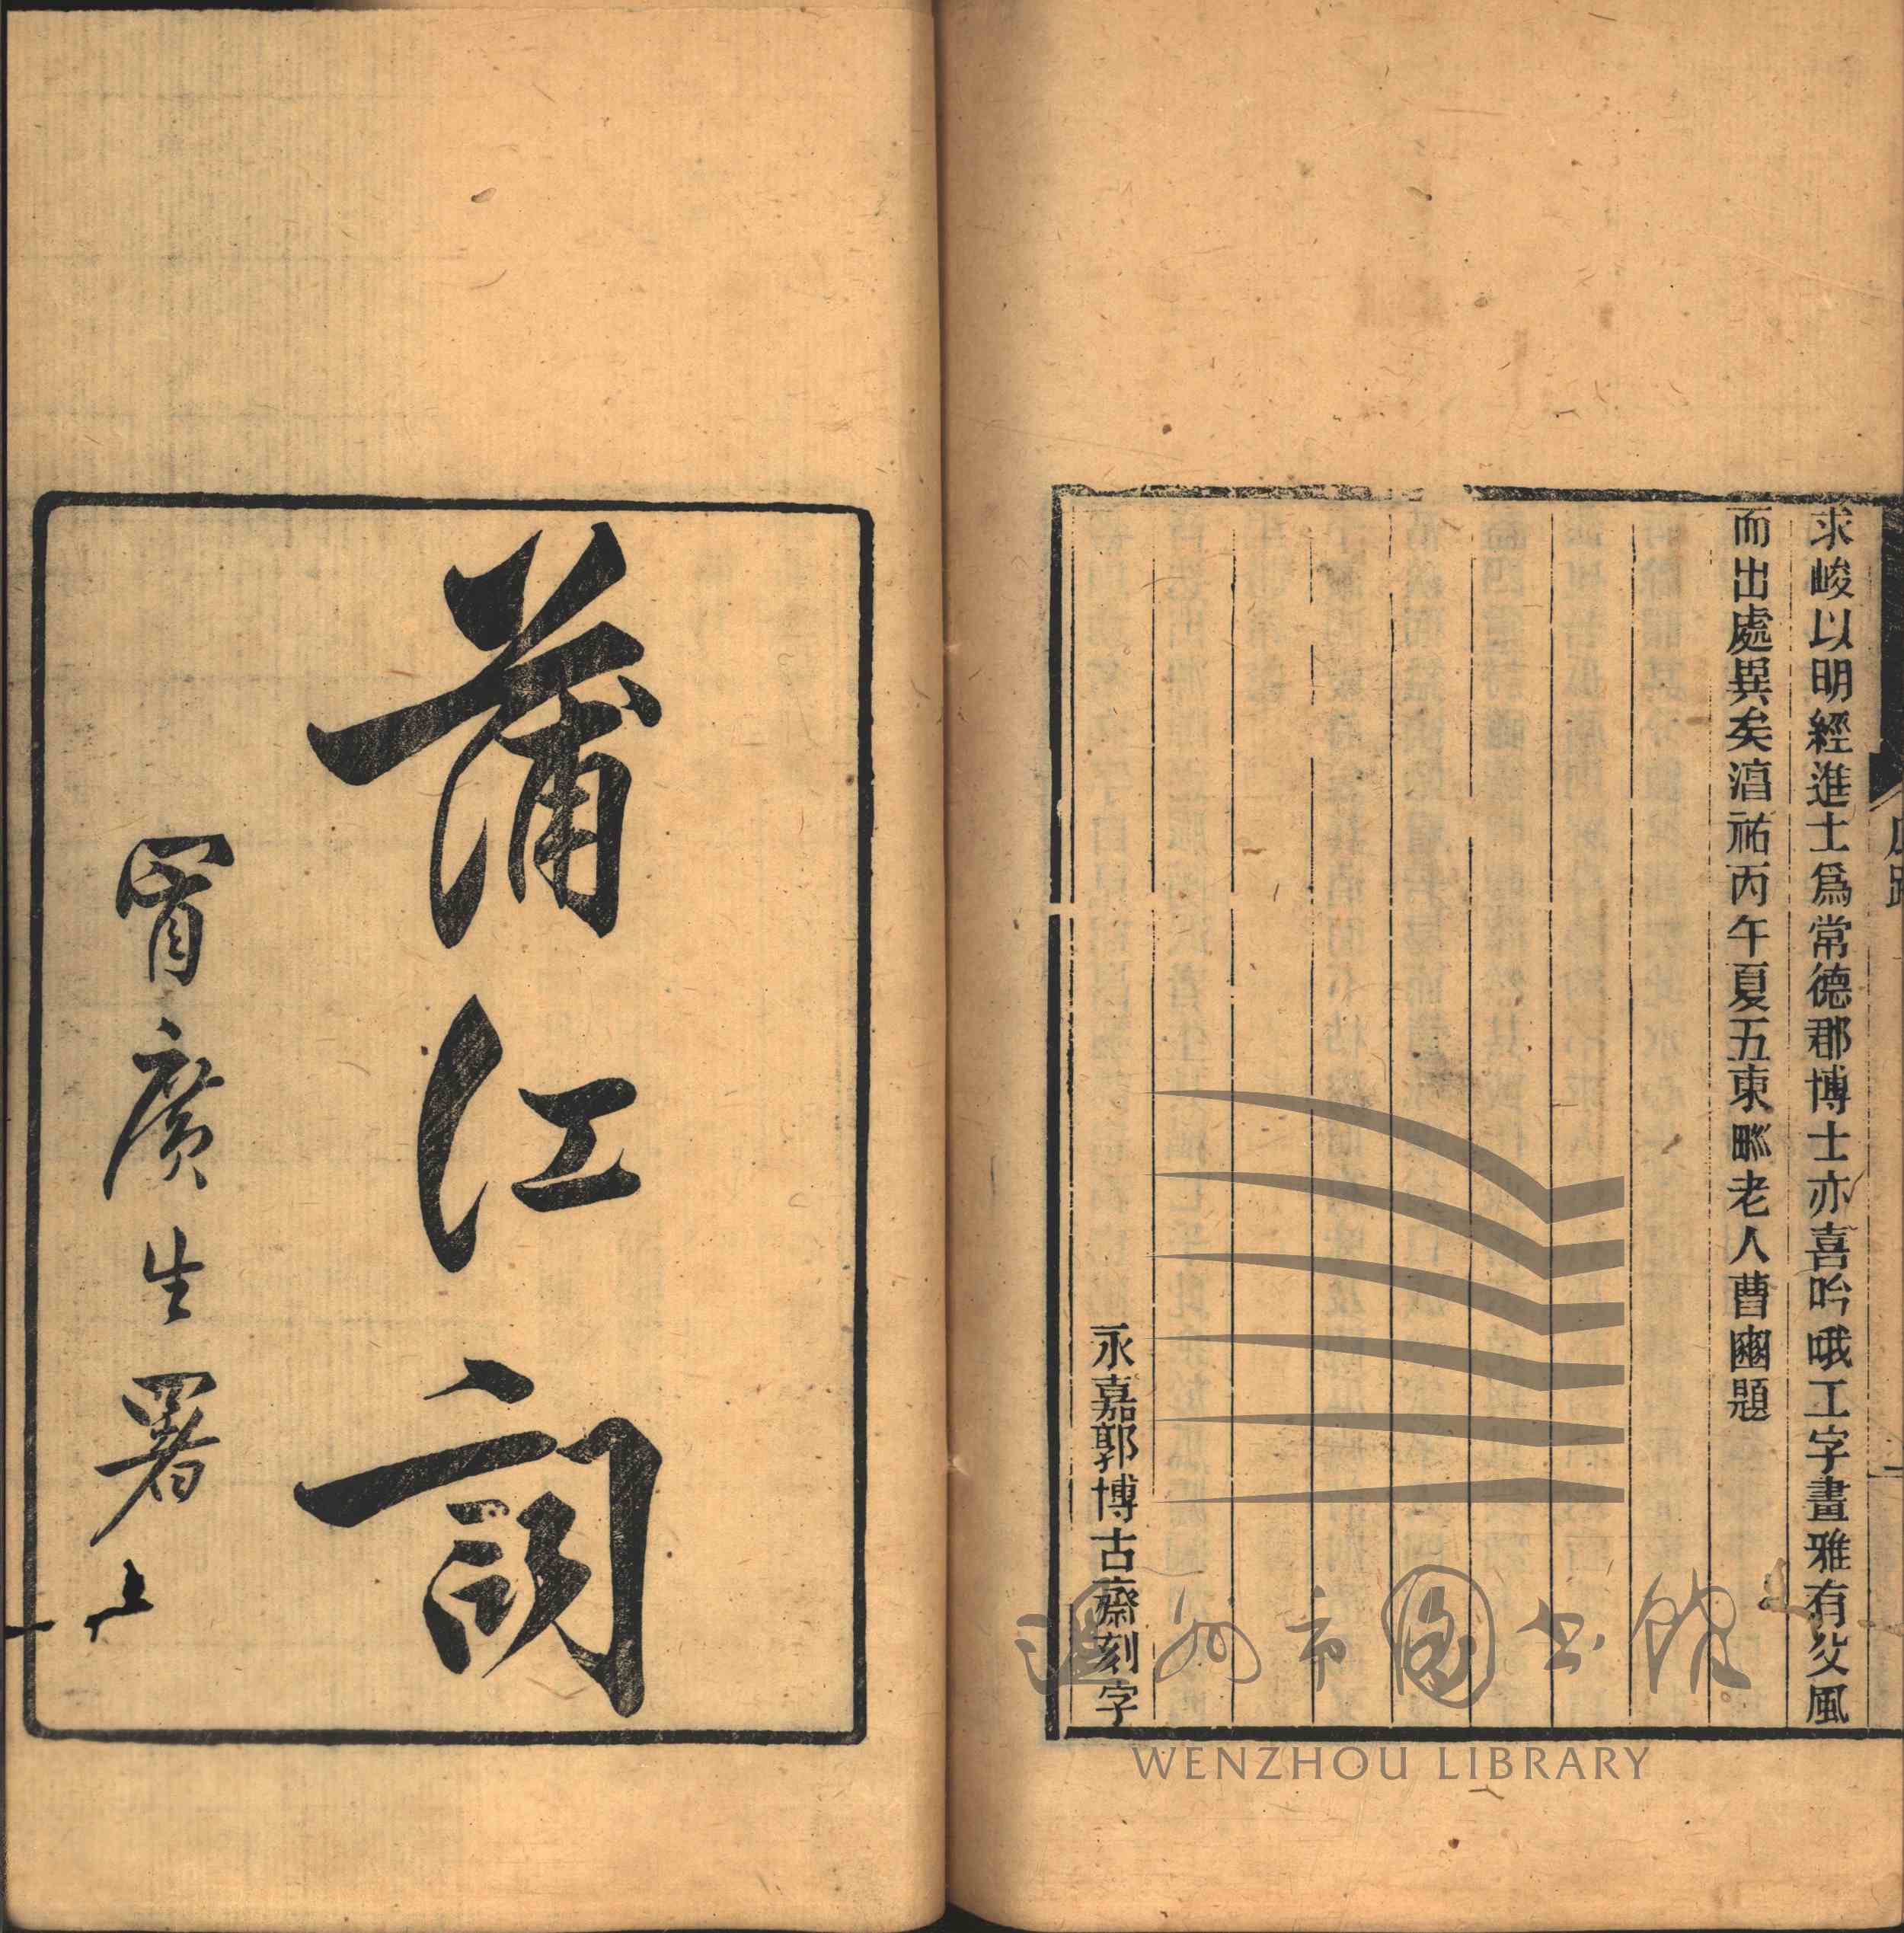 求峻以明經進士爲常德郡博士亦喜吟哦工字畫雅有父風
而出處異矣湻祐丙午夏五東畎老人曹豳題
永嘉郭博古齋刻字
蒲江詞
冒廣生署
温州市图书馆
WENZHOU LIBRARY